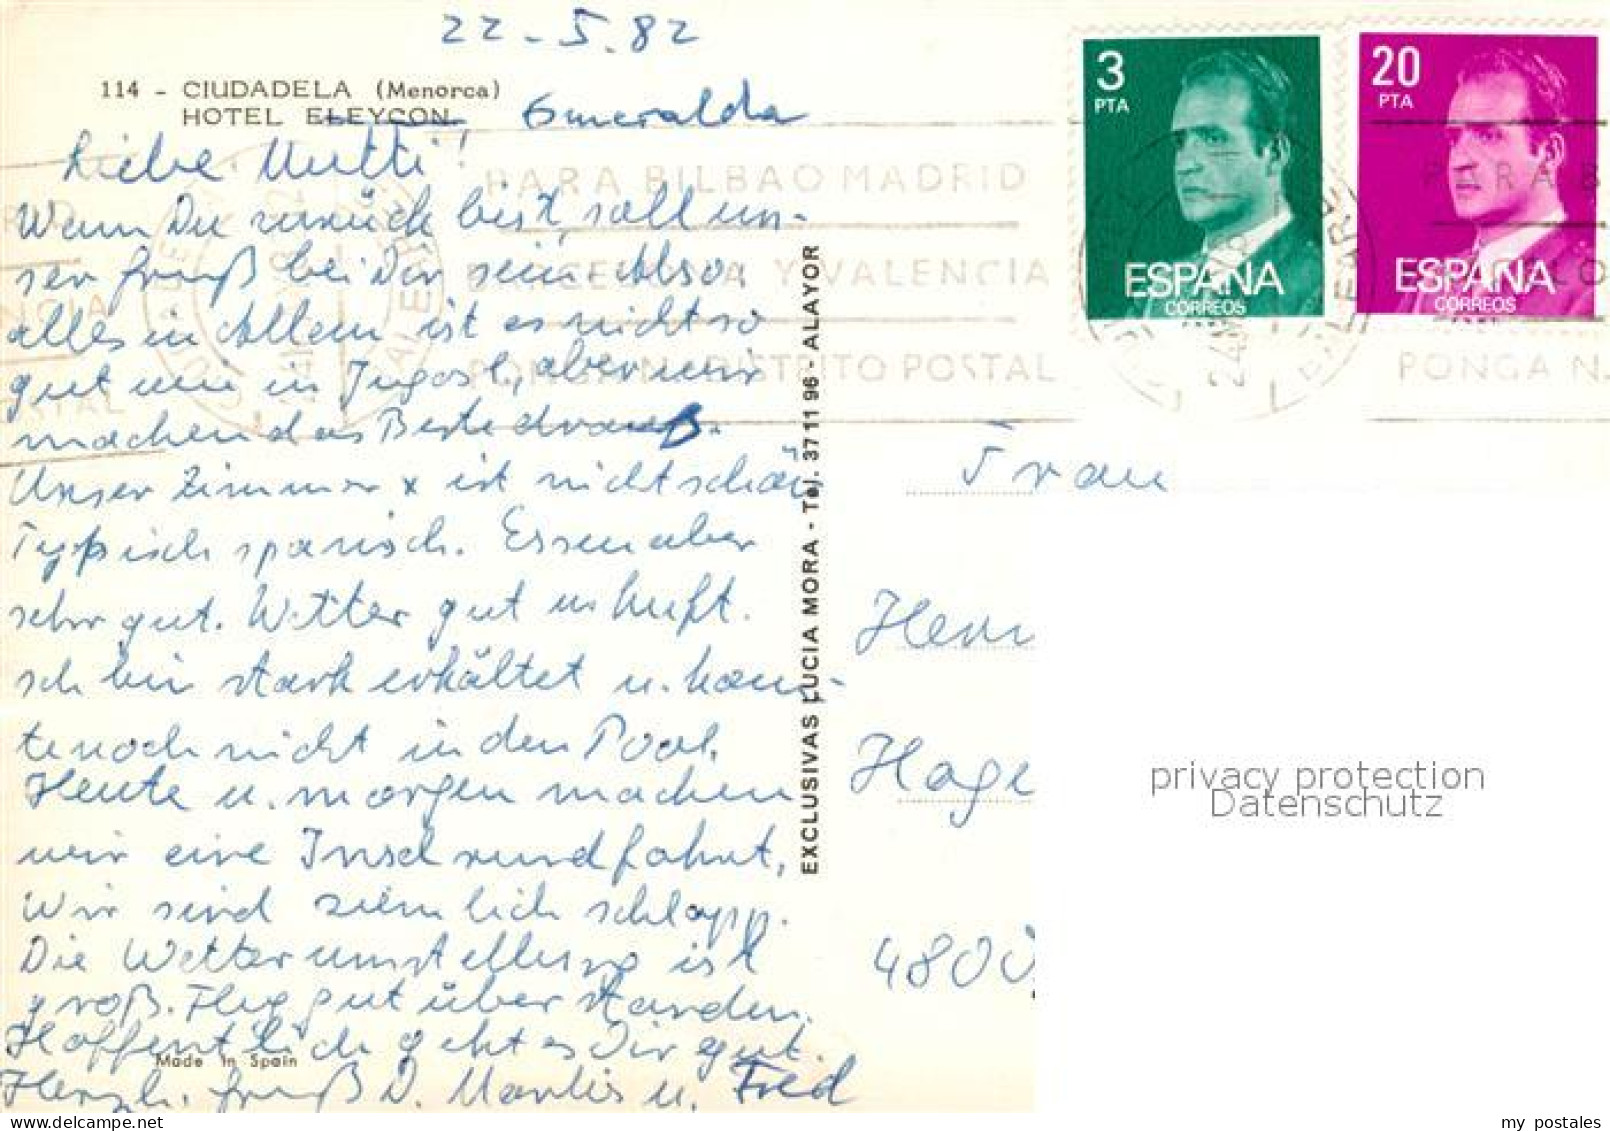 22-5.82
114 - CIUDADELA (Menorca)
HOTEL ELEYCON Esmeralda
Liebe Mutti!
Wenn Du zurück bist, soll un-
ser Gruß bei Dir sein. Also:
alles in Allem ist es nicht so
gut wie in Jugosl., aber wir
machen das Beste draus.
Unser Zimmer x ist nicht schön
Typisch spanisch. Essen aber
sehr gut. Wetter gut u. Luft.
Ich bin stark erkältet u. konn-
te noch nicht in den Pool.
Heute u. morgen machen
wir eine Inselrundfahrt,
Wir sind ziemlich schlapp.
Die Wetterumstellung ist
groß. Flug gut überstanden.
Hoffentlich geht es Dir gut.
Made in Spain
Herzl. Gruß D. Marlis u. Fred
EXCLUSIVAS LUCIA MORA - Tel. 37 11 96 - ALAYOR
3
PTA
ESPAÑA
CORREOS
20
PTA
ESPAÑA
CORREOS
PARA BILBAO MADRID
BARCELONA Y VALENCIA
PONGA N. DISTRITO POSTAL
PARA B
PONGA N.
Frau
Herm
Hage
4800
privacy protection
Datenschutz
my postales